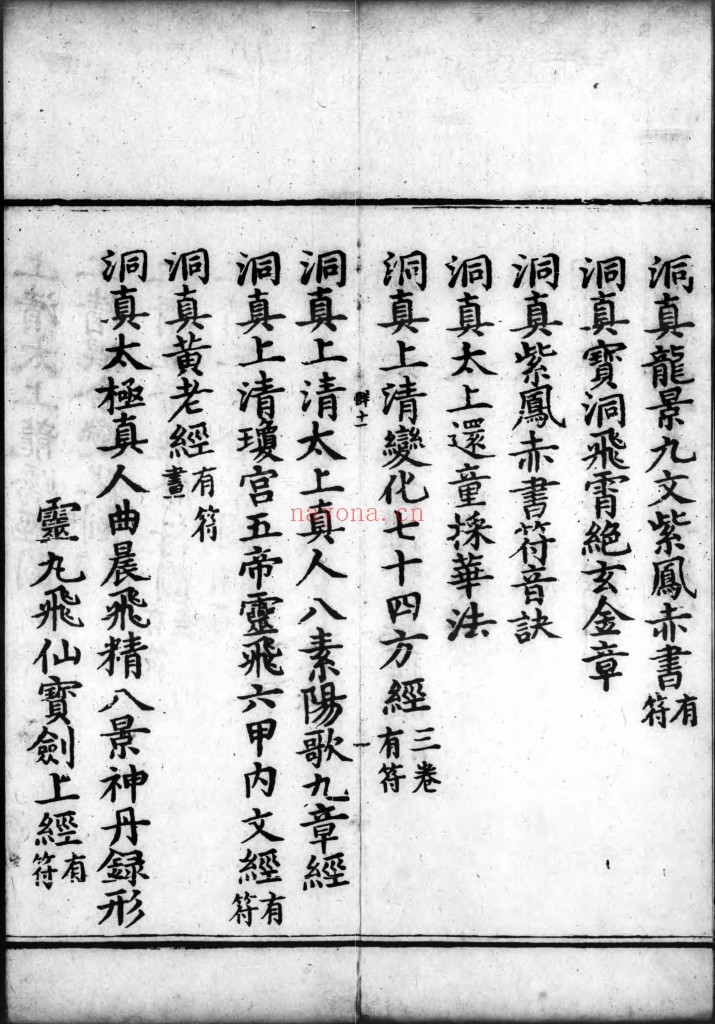 洞真龍景九文紫鳳赤書有符
洞真寶洞飛霄絕玄金章
洞真紫鳳赤書符音訣
洞真太上還童採華法
洞真上清變化七十四方經三卷有符
洞真上清太上真人八素陽歌九章經
洞真上清瓊宮五帝靈飛六甲內文經有符
洞真黃老經有符畫
洞真太極真人曲晨飛精八景神丹録形
靈丸飛仙寶劍上經有符
nayona.cn